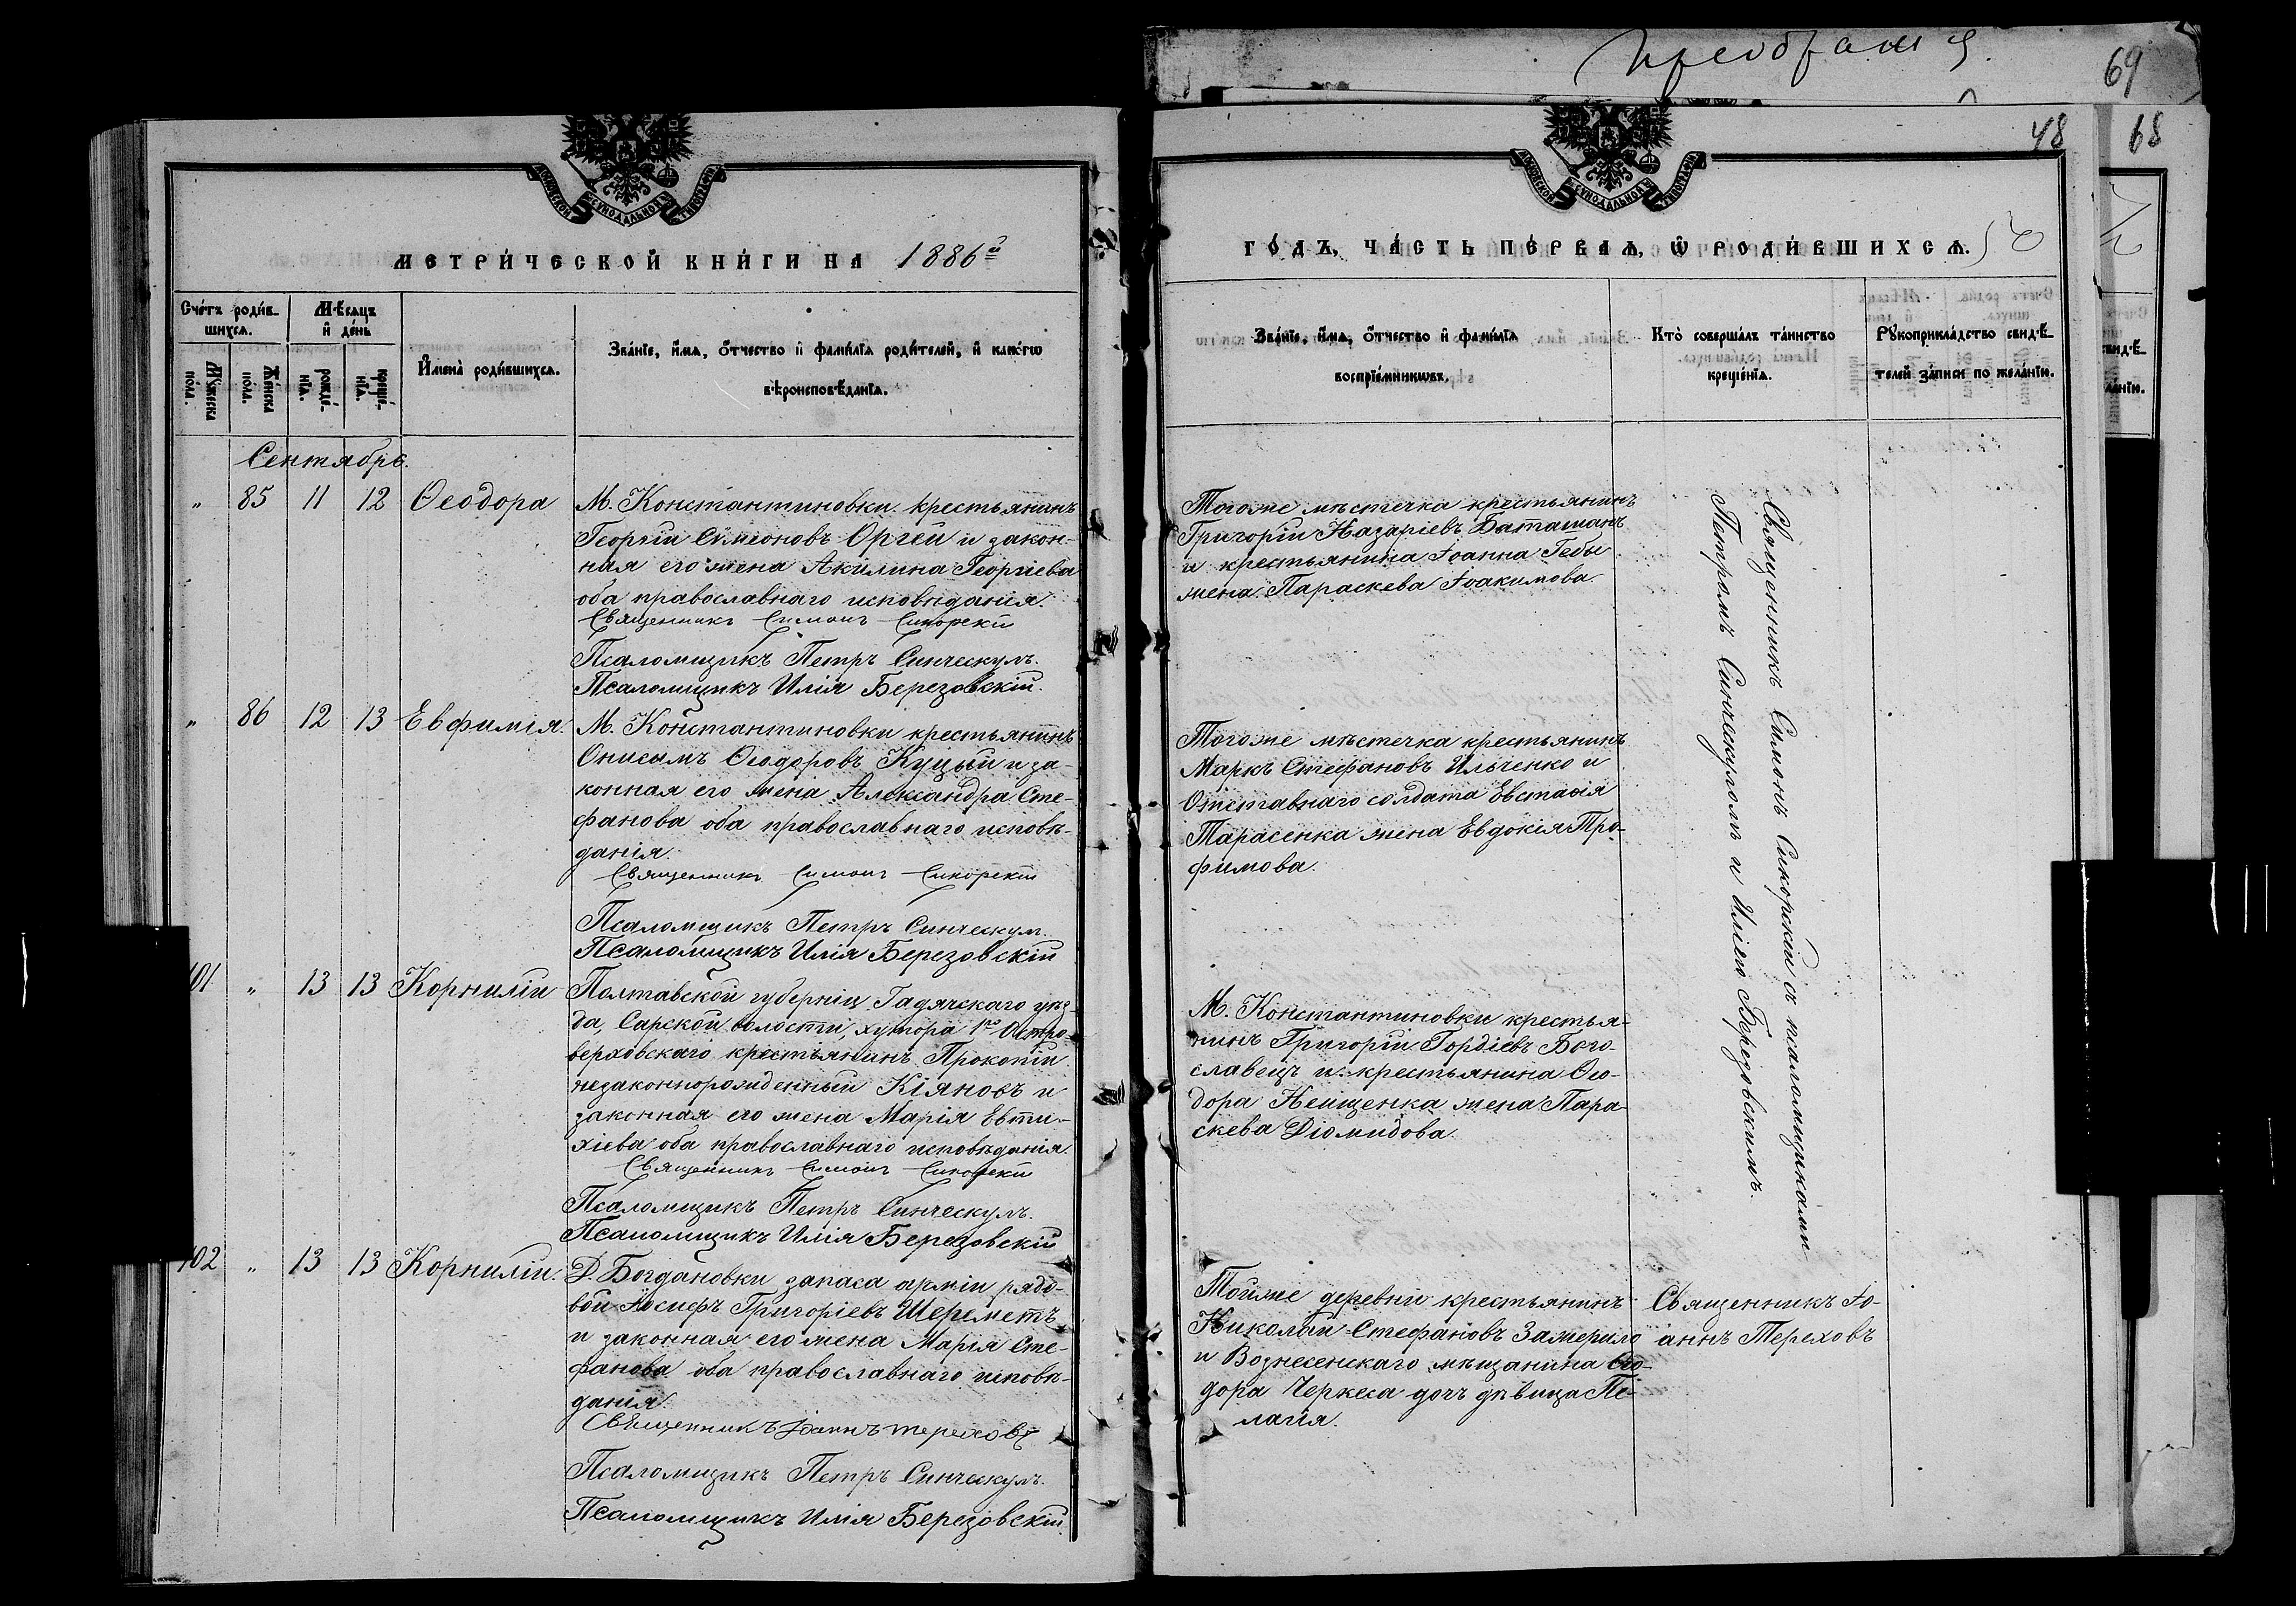 преображ
69
48
68
МОСКОВСКОЙ СѴНОДАЛЬНОЙ ТИПОГРАФІИ
МОСКОВСКОЙ СѴНОДАЛЬНОЙ ТИПОГРАФІИ
МЕТРИ́ЧЕСКОЙ КНИ́ГИ НА 1886й
ГО́ДЪ, ЧА́СТЬ ПЕ́РВАѦ, Ѽ РОДИ́ВШИХСѦ.
Сче́тъ роди́в-
шихсѧ.
Мѣ́сѧцъ
и҆ де́нь
Мꙋ́жеска
по́ла.
Же́нска
по́ла.
рожде́-
нїѧ.
креще́-
нїѧ.
И҆мена̀ роди́вшихсѧ.
Зва́нїе, и҆́мѧ, ѻ҆́тчество и҆ фами́лїѧ роди́телей, и҆ како́гѡ
вѣроисповѣ́данїѧ.
Зва́нїе, и҆́мѧ, ѻ҆́тчество и҆ фами́лїѧ
воспрїе́мникѡвъ.
Кто̀ соверша́лъ та́инство
креще́нїѧ.
Рꙋкоприкла́дство свидѣ́-
телей за́писи по жела́нїю.
Сентябрь.
" 85 11 12 Ѳеодора
М. Константиновки крестьянинъ
Георгій Симеоновъ Оргей и закон-
ная его жена Акилина Георгіева
оба православнаго исповѣданія.
Священникъ Симонъ Сикорскій
Псаломщикъ Петръ Синческулъ.
Псаломщикъ Илія Березовскій.
Тогоже мѣстечка крестьянинъ
Григорій Назаріевъ Баташанъ
и крестьянина Іоанна Гебы
жена Параскева Іоакимова.
Священникъ Симонъ Сикорскій съ псаломщиками
Петромъ Синческуломъ и Иліею Березовскимъ.
" 86 12 13 Евфимія.
М. Константиновки крестьянинъ
Онисимъ Ѳеодоровъ Куцый и за-
конная его жена Александра Сте-
фанова оба православнаго исповѣ-
данія.
Священникъ Симонъ Сикорскій
Псаломщикъ Петръ Синческул.
Псаломщикъ Илія Березовскій
Тогоже мѣстечка крестьянинъ
Маркъ Стефановъ Ильченко и
Отставнаго солдата Евстафія
Тарасенка жена Евдокія Тро-
фимова.
101 " 13 13 Корнилій
Полтавской губерніи Гадячскаго уѣз-
да, Сарской волости, хутора 1го Остро-
верховскаго крестьянинъ Прокопій
незаконнорожденный Кіяновъ и
законная его жена Марія Евти-
хіева оба православнаго исповѣданія.
Священникъ Симонъ Сикорскій
Псаломщикъ Петръ Синческулъ.
Псаломщикъ Илія Березовскій
М. Константиновки крестья-
нинъ Григорій Гордіевъ Бого-
славецъ и крестьянина Ѳео-
дора Неищенка жена Пара-
скева Діомидова.
102 " 13 13 Корнилій.
Д. Богдановки запаса арміи рядо-
вой Іосифъ Григоріевъ Шереметъ
и законная его жена Марія Сте-
фанова оба православнаго исповѣ-
данія.
Священникъ Іоаннъ Тереховъ
Псаломщикъ Петръ Синческулъ.
Псаломщикъ Илія Березовскій.
Тойже деревни крестьянинъ
Николай Стефановъ Замерило
и Вознесенскаго мѣщанина Ѳео-
дора Черкеса дочь дѣвица Пе-
лагія.
Священникъ Іо-
аннъ Тереховъ